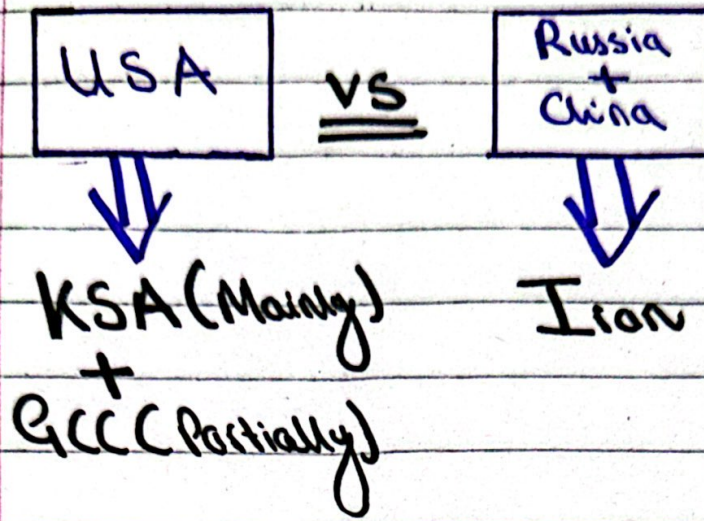 USA
vs
Russia
+
China
KSA (Mainly)
+
GCC (Partially)
Iran